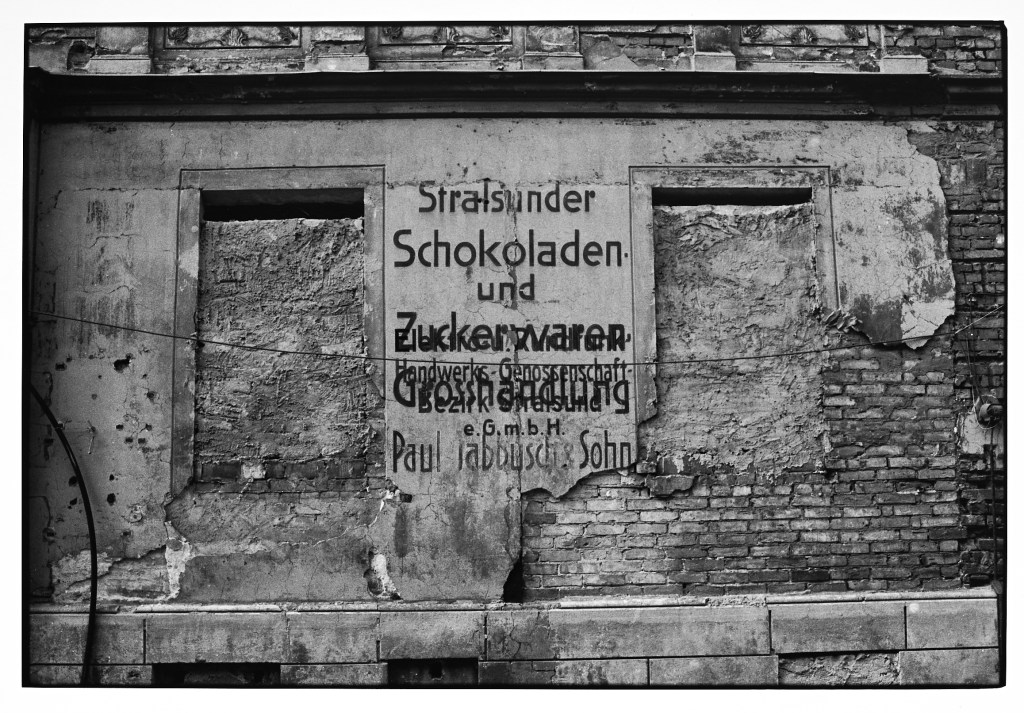 Stralsunder
Schokoladen-
und
Zuckerwaren
Elektro- u.
Handwerks-Genossenschaft
Grosshandlung
Bezirk Stralsund
e.G.m.b.H.
Paul & Sohn